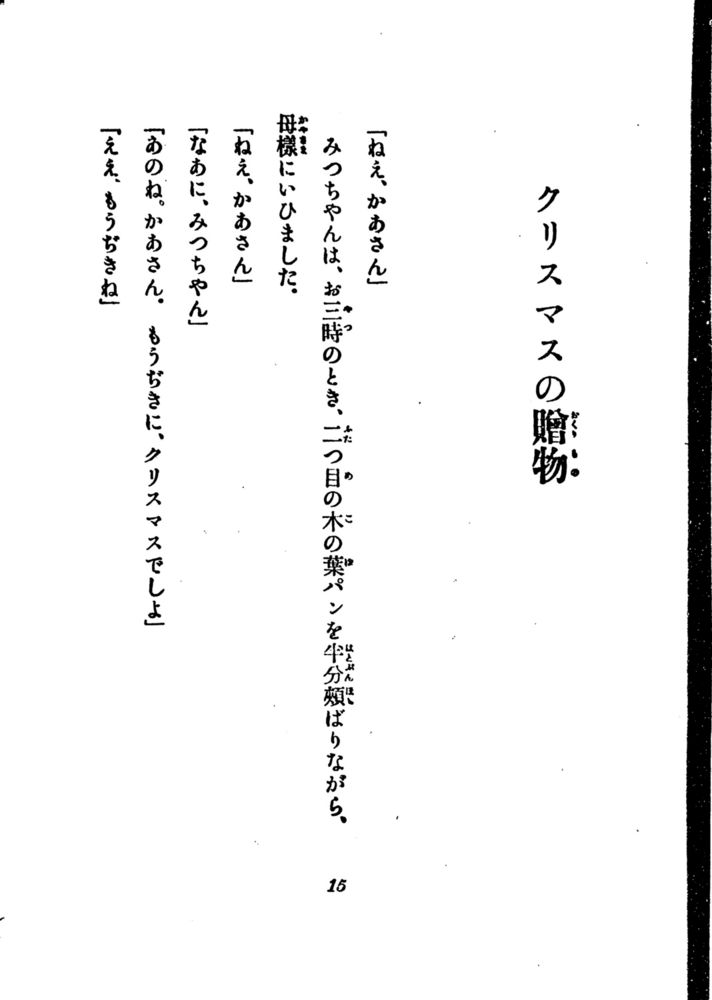 クリスマスの贈物
「ねえ、かあさん」
みつちやんは、お三時のとき、二つ目の木の葉パンを半分頰ばりながら、
母樣にいひました。
「ねえ、かあさん」
「なあに、みつちやん」
「あのね。かあさん。もうぢきに、クリスマスでしよ」
「ええ、もうぢきね」
15